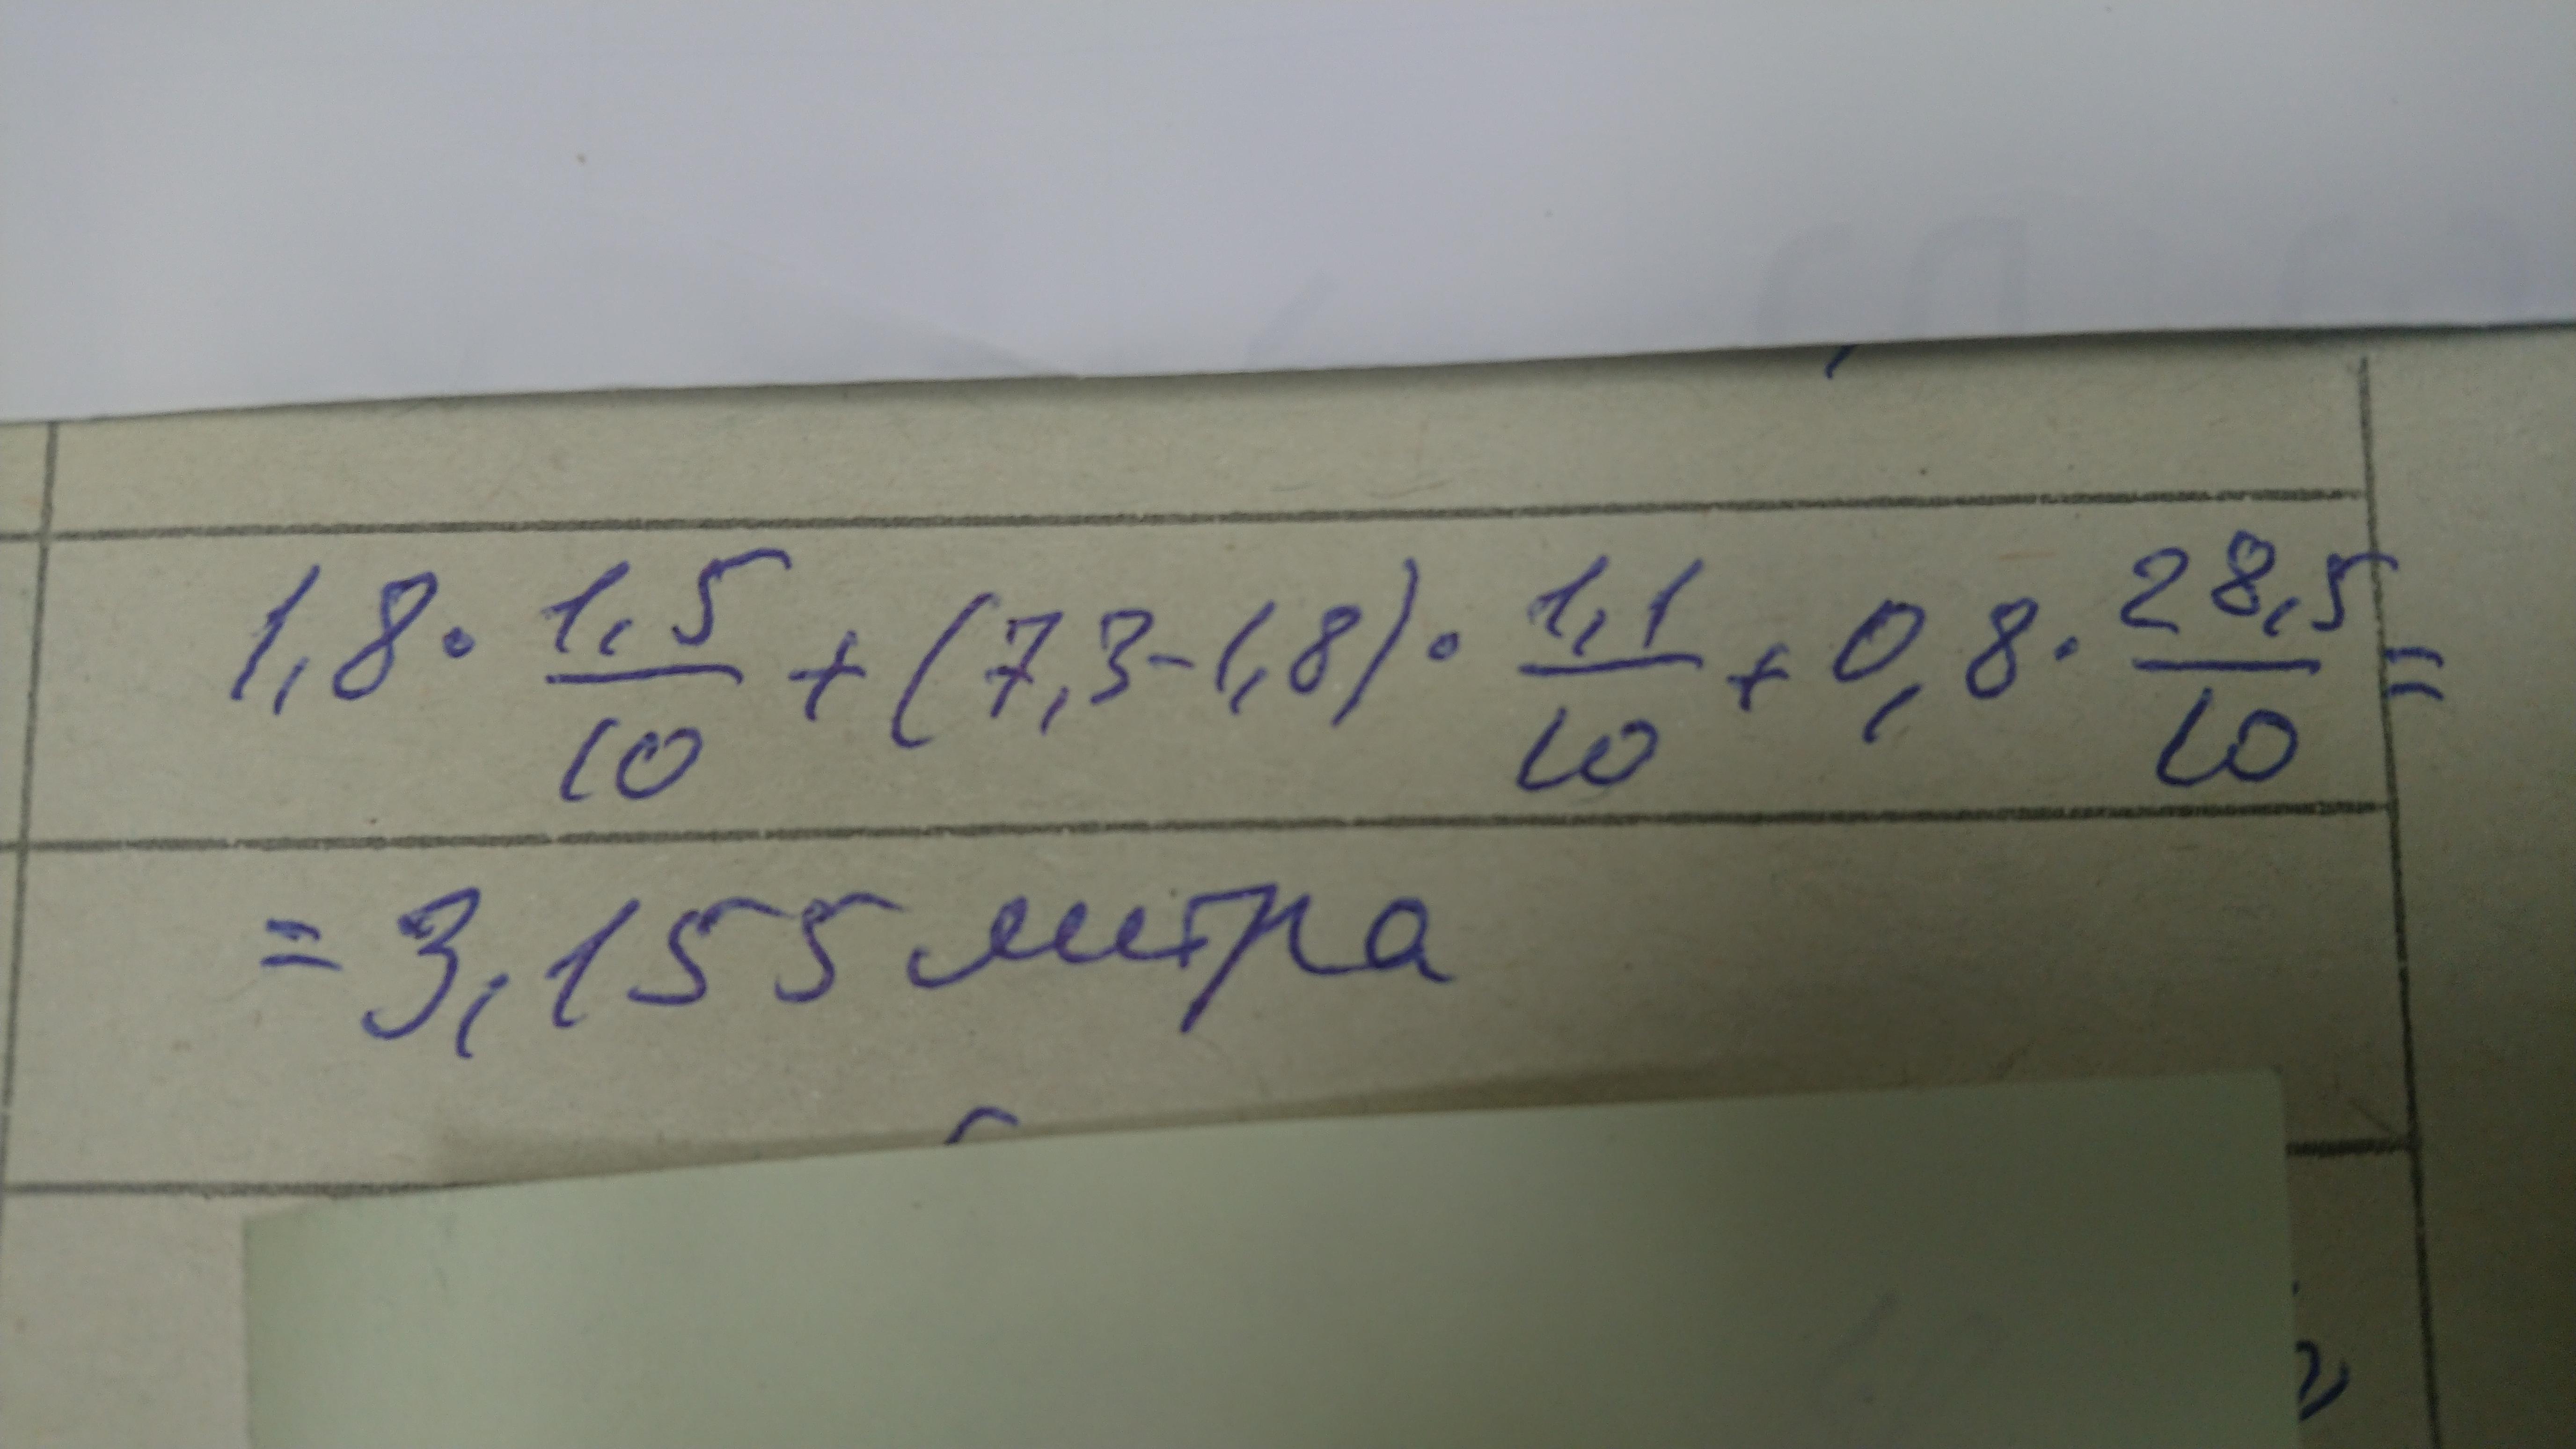 1,8 · 1,5/10 + (7,3-1,8) · 1,1/10 + 0,8 · 28,5/10 =
= 3,155 литра